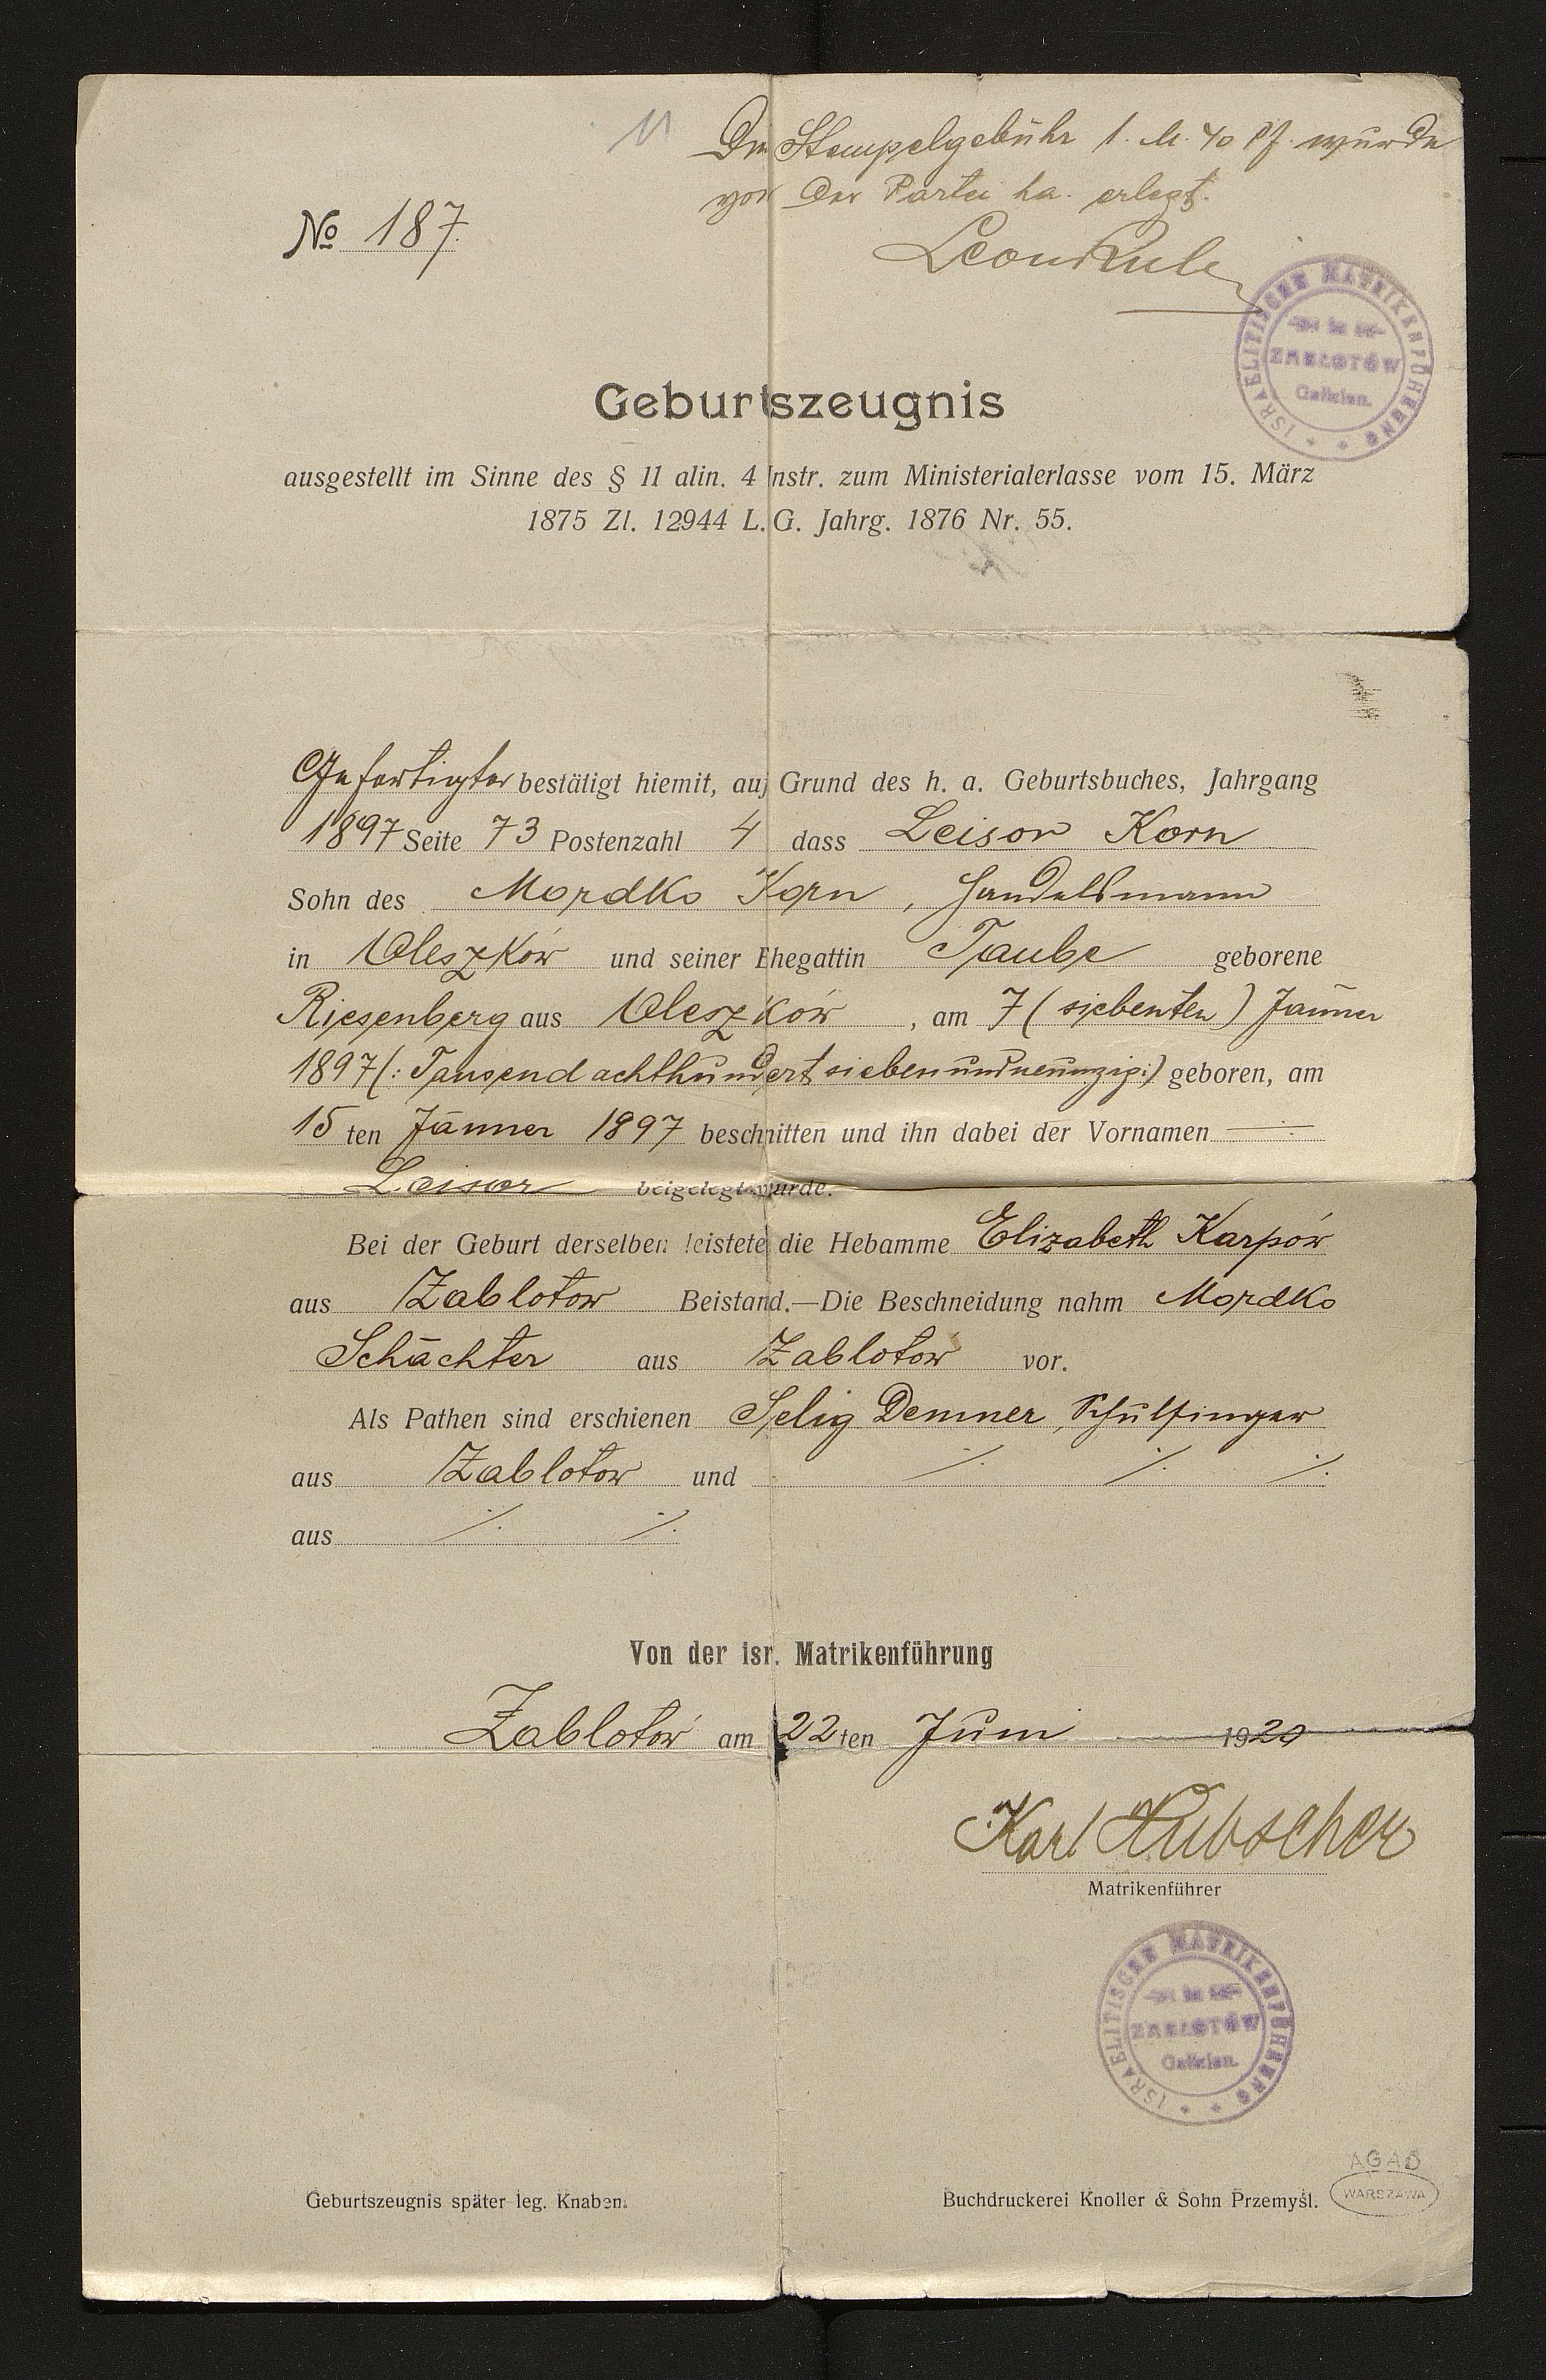 11
Die Stempelgebühr 1. M. 40 Pf. wurde
von der Partei ha. erlegt.
Leon
№ 187.
ISRAELITISCHE MATRIKENFÜHRUNG
in
ZABŁOTÓW
Galizien.
Geburtszeugnis
ausgestellt im Sinne des § 11 alin. 4 Instr. zum Ministerialerlasse vom 15. März
1875 Zl. 12944 L. G. Jahrg. 1876 Nr. 55.
Gefertigter bestätigt hiemit, auf Grund des h. a. Geburtsbuches, Jahrgang
1897 Seite 73 Postenzahl 4 dass Leisor Korn
Sohn des Mordko Korn, Handelsmann
in Oleszków und seiner Ehegattin Taube geborene
Riesenberg aus Oleszków, am 7 (siebenten) Jänner
1897 (: Tausend achthundert siebenundneunzig :) geboren, am
15 ten Jänner 1897 beschnitten und ihn dabei der Vornamen
Leisor beigelegt wurde.
Bei der Geburt derselben leistete die Hebamme Elizabeth Karpów
aus Zablotow Beistand.—Die Beschneidung nahm Mordko
Schächter aus Zablotów vor.
Als Pathen sind erschienen Selig Demner, Schulsinger
aus Zablotow und ⁒ ⁒ ⁒
aus ⁒ ⁒
Von der isr. Matrikenführung
Zablotów am 22 ten Juni 1920
Karl Hübscher
Matrikenführer
ISRAELITISCHE MATRIKENFÜHRUNG
in
ZABŁOTÓW
Galizien.
AGAD
WARSZAWA
Geburtszeugnis später leg. Knaben.
Buchdruckerei Knoller & Sohn Przemyśl.